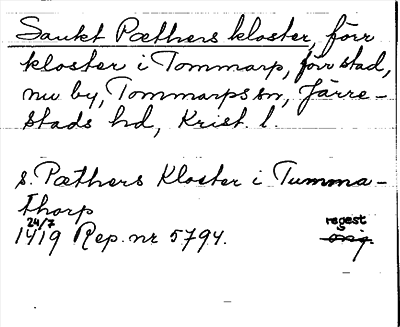 Sankt Pæthers kloster, förr
kloster i Tommarp, förr stad,
nu by, Tommarps sn, Järre-
stads hd, Krist. l.
s. Pæthers Kloster i Tumma-
thorp
24/7
1419 Rep. nr 5794.
regest
orig.